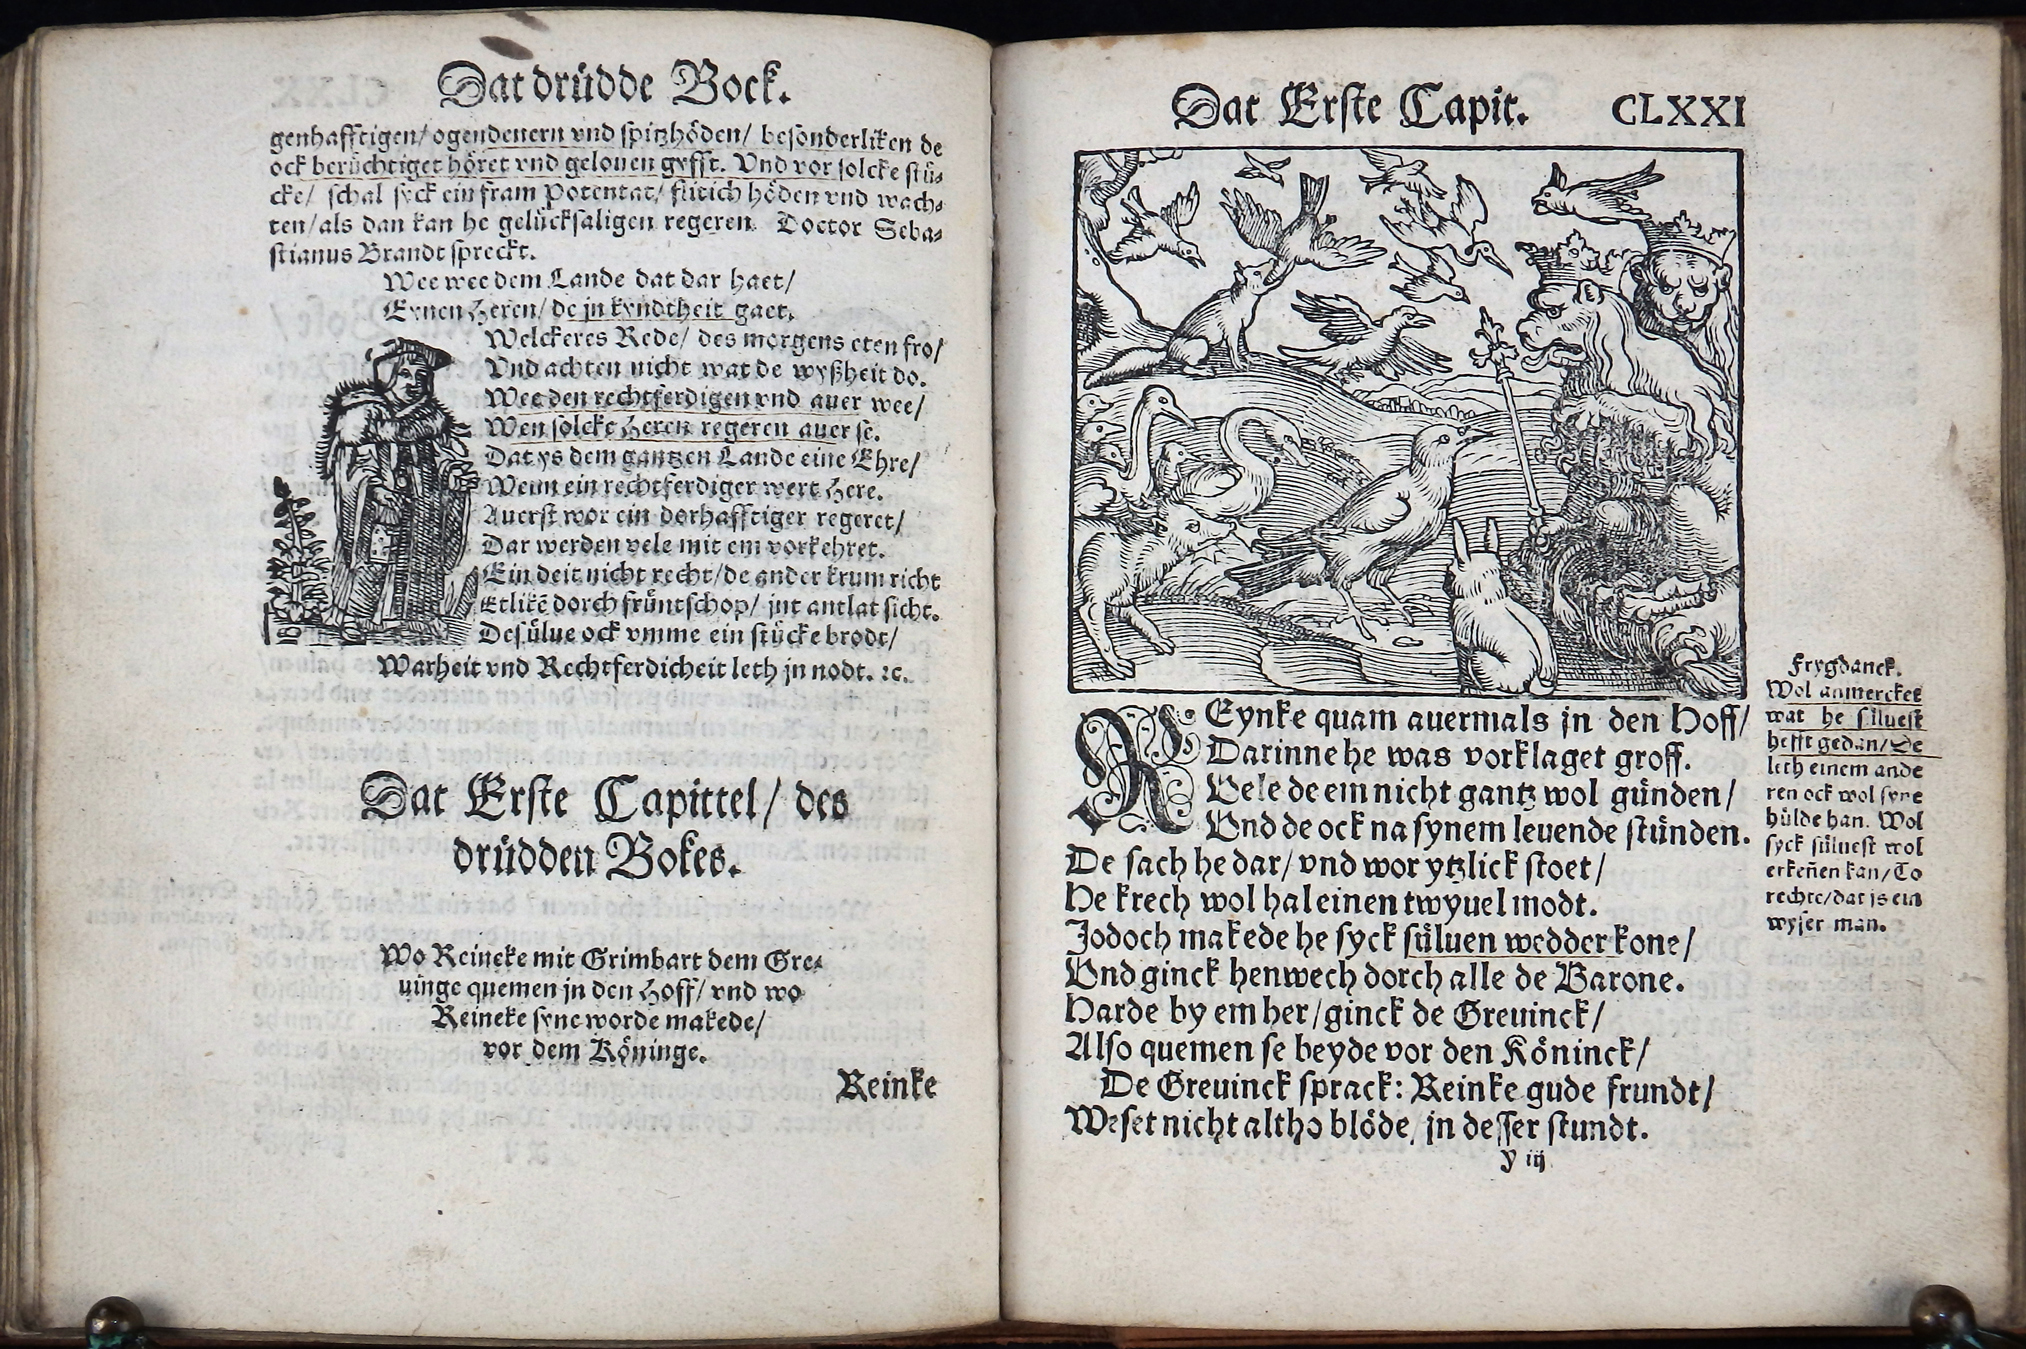 Dat drüdde Bock.
genhafftigen/ ogendenern vnd spitzhöden/ besonderliken de
ock berüchtiget höret vnd gelouen gyfft. Vnd vor solcke stü-
cke/ schal syck ein fram Potentat/ flitich höden vnd wach-
ten/ als dan kan he gelücksaligen regeren. Doctor Seba-
stianus Brandt spreckt.
Wee wee dem Lande dat dar haet/
Eynen Heren/ de jn kyndtheit gaet.
Welckeres Rede/ des morgens eten fro/
Vnd achten nicht wat de wyßheit do.
Wee den rechtferdigen vnd auer wee/
Wen solcke Heren regeren auer se.
Dat ys dem gantzen Lande eine Ehre/
Wenn ein rechtferdiger wert Here.
Auerst wor ein dorhafftiger regeret/
Dar werden vele mit em vorkehret.
Ein deit nicht recht/ de ander krum richt
Etlikē dorch früntschop/ jnt antlat sicht.
Desülue ock vmme ein stücke brodt/
Warheit vnd Rechtferdicheit leth jn nodt. ꝛc.
Dat Erste Capittel/ des
drüdden Bokes.
Wo Reineke mit Grimbart dem Gre-
uinge quemen jn den Hoff/ vnd wo
Reineke syne worde makede/
vor dem Köninge.
Reinke
Dat Erste Capit. CLXXI
REynke quam auermals jn den Hoff/
Darinne he was vorklaget groff.
Vele de em nicht gantz wol günden/
Vnd de ock na synem leuende stünden.
De sach he dar/ vnd wor ytzlick stoet/
He krech wol hal einen twyuel modt.
Jodoch makede he syck süluen wedder kone/
Vnd ginck henwech dorch alle de Barone.
Harde by em her/ ginck de Greuinck/
Also quemen se beyde vor den Köninck/
De Greuinck sprack: Reinke gude frundt/
Weset nicht altho blöde/ jn desser stundt.
y iij
Frygdanck.
Wol anmercket
wat he süluest
hefft gedan/ De
leth einem ande
ren ock wol syne
hülde han. Wol
syck süluest wol
erkeñen kan/ To
rechte/ dat is ein
wyser man.